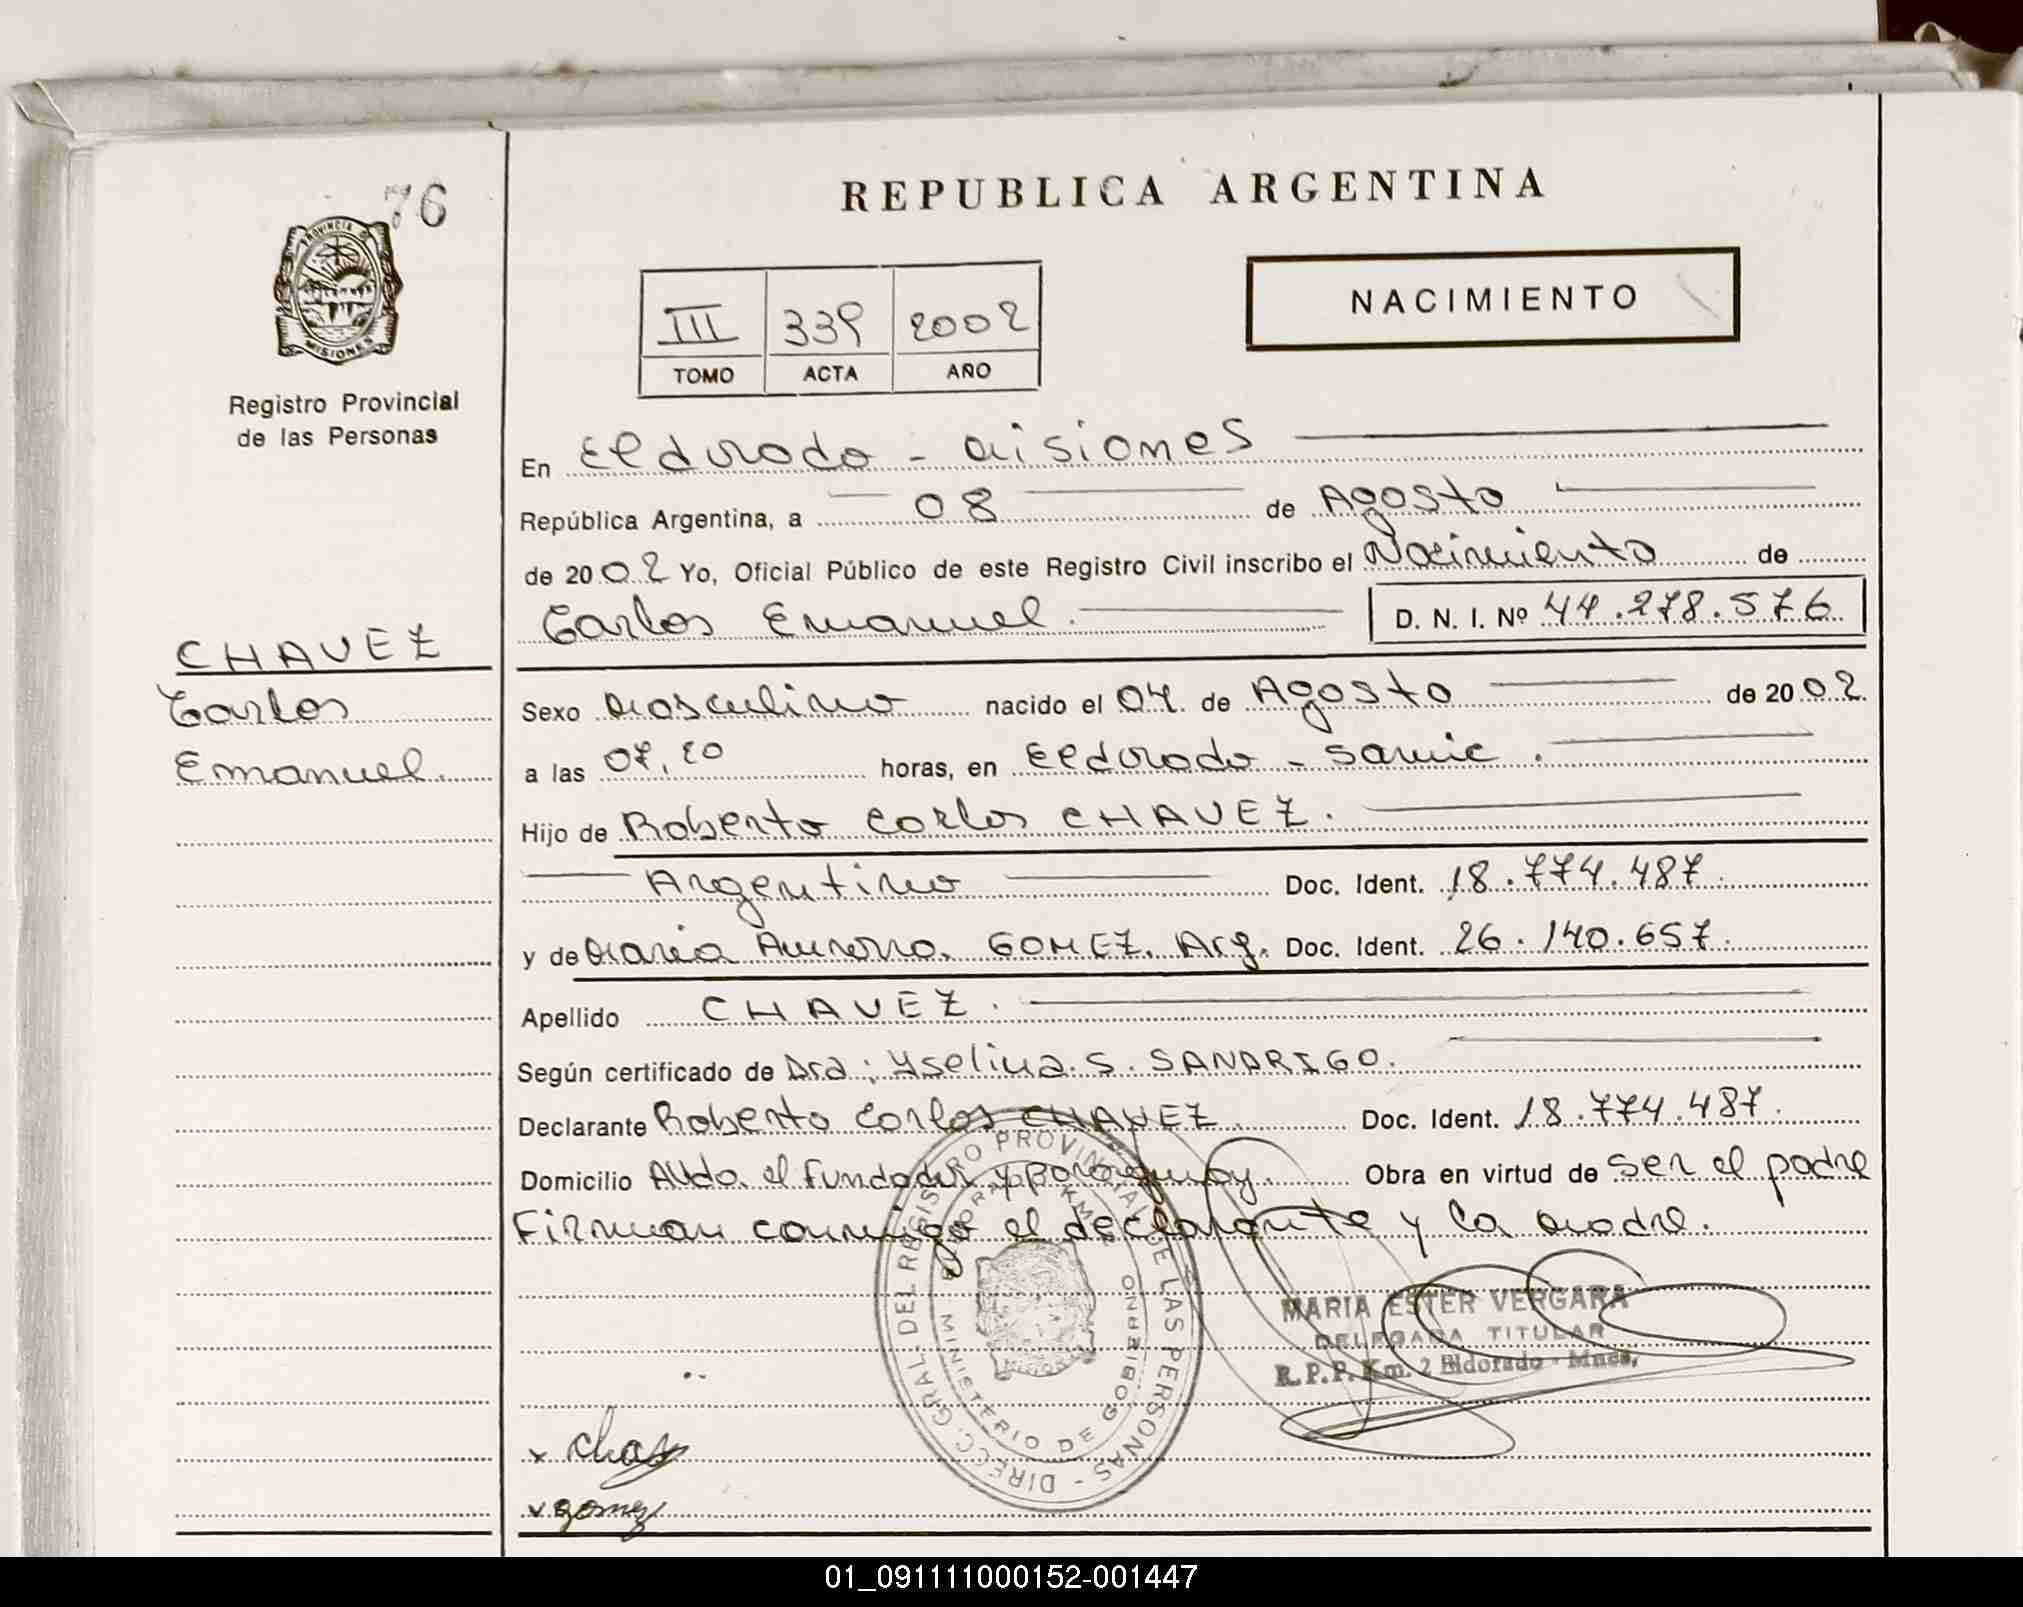 76
PROVINCIA DE
MISIONES
Registro Provincial
de las Personas
CHAVEZ
Carlos
Emanuel
REPUBLICA ARGENTINA
III 339 2002
TOMO ACTA AÑO
NACIMIENTO
En Eldorado - Misiones
República Argentina, a 08 de Agosto
de 2002 Yo, Oficial Público de este Registro Civil inscribo el Nacimiento de
Carlos Emanuel. D. N. I. Nº 44.278.576
Sexo Masculino nacido el 04 de Agosto de 2002.
a las 07,20 horas, en Eldorado - Samic.
Hijo de Roberto Carlos CHAVEZ.
Argentino Doc. Ident. 18.774.487.
y de Maria Aurora. GOMEZ. Arg. Doc. Ident. 26.140.657.
Apellido CHAVEZ.
Según certificado de Dra: Yselina. S. SANDRIGO.
Declarante Roberto Carlos CHAVEZ. Doc. Ident. 18.774.487.
Domicilio Avda. el Fundador y Paraguay. Obra en virtud de ser el padre
Firman conmigo el declarante y la madre.
DIRECC. GRAL. DEL REGISTRO PROVINCIAL DE LAS PERSONAS -
MINISTERIO DE GOBIERNO
MARIA ESTER VERGARA
DELEGADA TITULAR
R.P.P. Km. 2 Eldorado - Mnes.
x Chav
x gomez
01_091111000152-001447